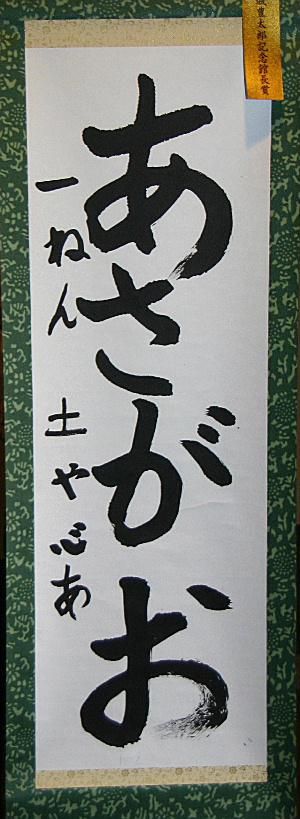 太郎記念館長賞
あさがお
一ねん 土や心あ